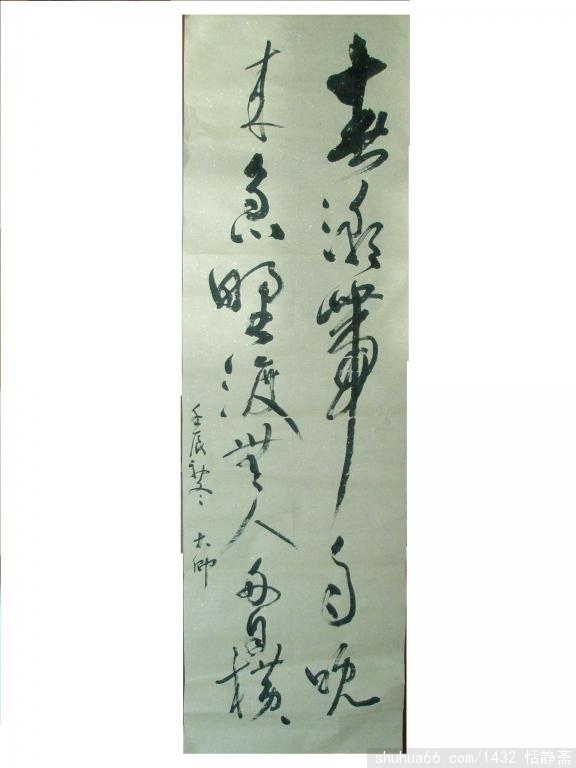 春潮帶雨晚
来急野渡無人舟自横
壬辰初冬
shuhua66.com/1432 恬静斋